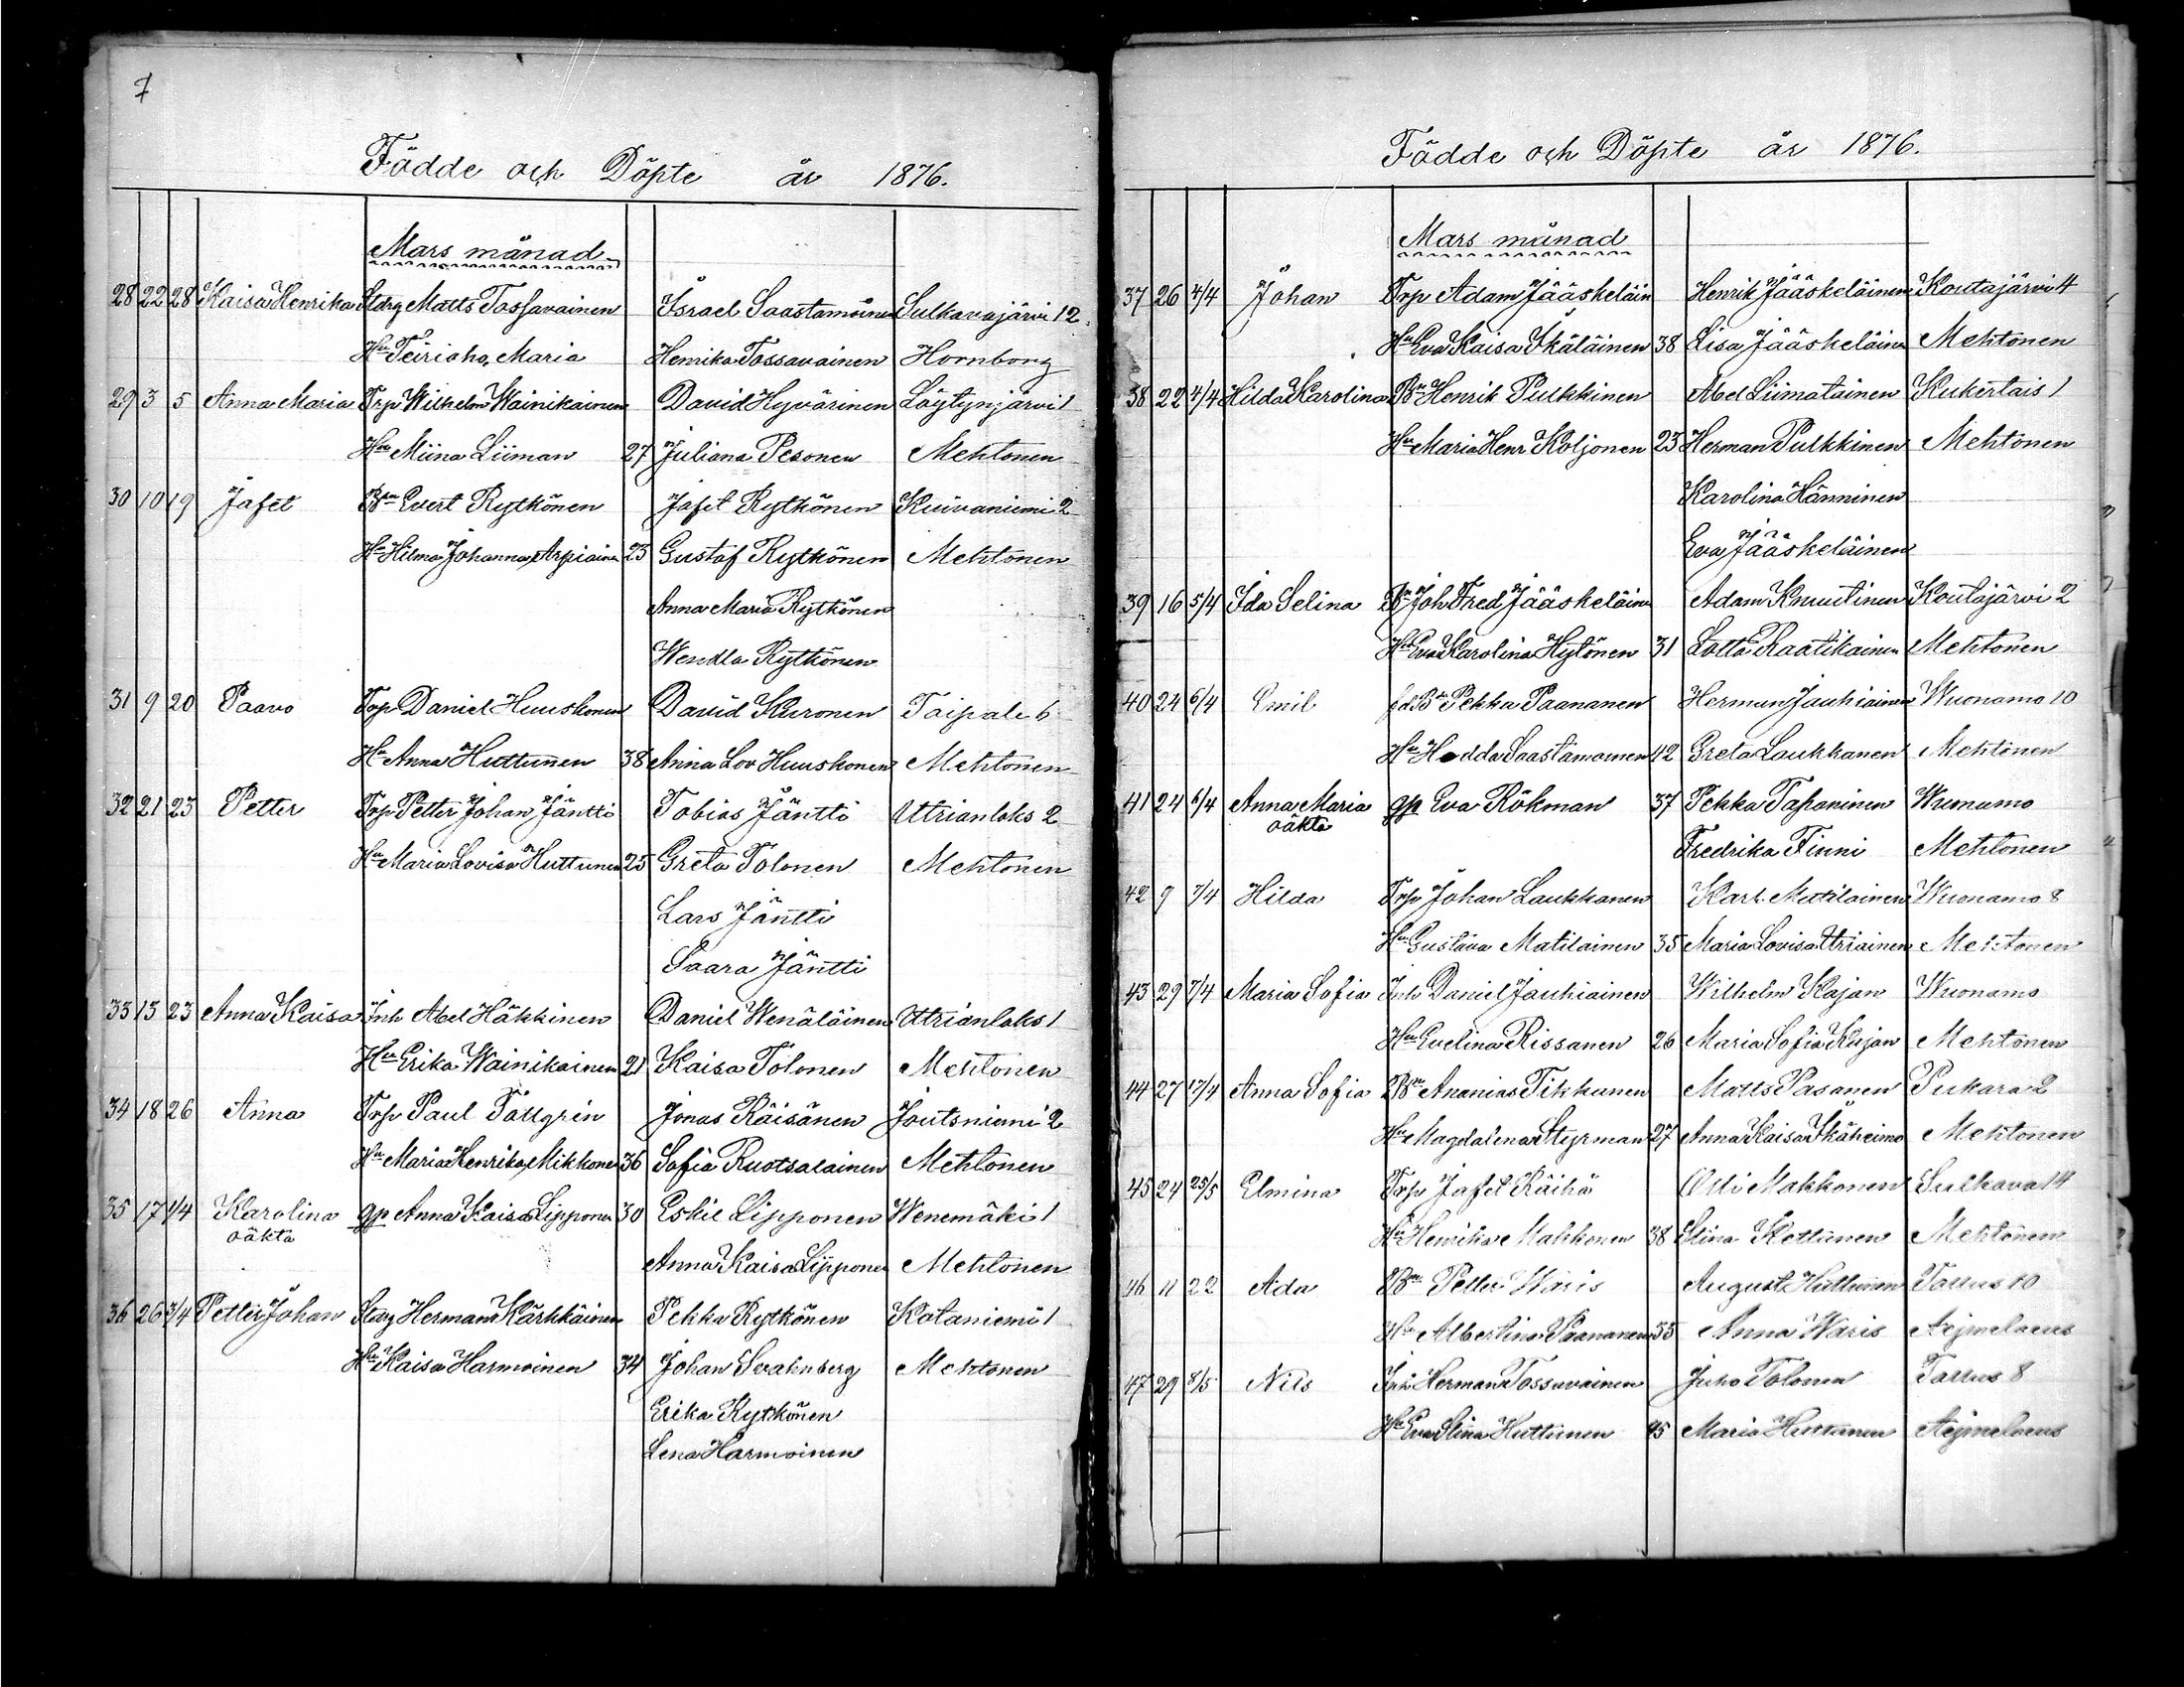 7
Födde och Döpte år 1876.
Mars månad
28 22 28 Kaisa Henrika Stdrg Matts Tossavainen Israel Saastamoinen Sulkavajärvi 12
Hu Teiriaho, Maria Henrika Tossavainen Hornborg
29 3 5 Anna Maria Trp Wilhelm Wainikainen David Hyvärinen Löytynjärvi 1
Hu Miina Liiman 27 Juliana Pesonen Mehtonen
30 10 19 Jafet Bn Evert Rytkönen Jafet Rytkönen Kuivaniemi 2
Hu Hilma Johanna Arpiainen 23 Gustaf Rytkönen Mehtonen
Anna Maria Rytkönen
Wendla Rytkönen
31 9 20 Paavo Trp Daniel Huuskonen David Kuronen Taipale 6
Hu Anna Huttunen 38 Anna Lov Huuskonen Mehtonen
32 21 23 Petter Trp Petter Johan Jäntti Tobias Jäntti Utrianlaks 2
Hu Maria Lovisa Huttunen 25 Greta Tolonen Mehtonen
Lars Jäntti
Saara Jäntti
33 15 23 Anna Kaisa Inh Abel Häkkinen Daniel Wenäläinen Utrianlaks 1
Hu Erika Wainikainen 21 Kaisa Tolonen Mehtonen
34 18 26 Anna Trp Paul Tallgrin Jonas Räisänen Joutsniemi 2
Hu Maria Henrika Mikkonen 36 Sofia Ruotsalainen Mehtonen
35 17 1/4 Karolina gp Anna Kaisa Lipponen 30 Eskil Lipponen Wenemäki 1
oäkta
Anna Kaisa Lipponen Mehtonen
36 26 3/4 Petter Johan Stdrg Herman Kärkkäinen Pekka Rytkönen Kotaniemi 1
Hu Kaisa Harmoinen 34 Johan Svahnberg Mehtonen
Erika Rytkönen
Lena Harmoinen
Födde och Döpte år 1876.
Mars månad
37 26 4/4 Johan Trp Adam Jääskeläin Henrik Jääskeläinen Koutajärvi 4
Hu Eva Kaisa Ikäläinen 38 Lisa Jääskeläinen Mehtonen
38 22 4/4 Hilda Karolina Bn Henrik Pulkkinen Abel Liimatainen Kukertais 1
Hu Maria Henr Koljonen 23 Herman Pulkkinen Mehtonen
Karolina Hänninen
Eva Jääskeläinen
39 16 5/4 Ida Selina Bn Joh Fred Jääskeläinen Adam Knuutinen Koutajärvi 2
Hu Eva Karolina Hytönen 31 Lotta Raatikainen Mehtonen
40 24 6/4 Emil fd Bn Pekka Paananen Herman Jauhiainen Wuonamo 10
Hu Hedda Saastamoinen 42 Greta Laukkanen Mehtonen
41 24 6/4 Anna Maria gp Eva Rökman 37 Pekka Tapaninen Wuonamo
oäkta
Fredrika Finni Mehtonen
42 9 7/4 Hilda Trp Johan Laukkanen Karl Matilainen Wuonamo 8
Hu Gustava Matilainen 35 Maria Lovisa Utriainen Mehtonen
43 29 7/4 Maria Sofia Inh Daniel Jauhiainen Wilhelm Kajan Wuonamo
Hu Evelina Rissanen 26 Maria Sofia Kajan Mehtonen
44 27 17/4 Anna Sofia Bn Ananias Tikkanen Matts Pasanen Pukara 2
Hu Magdalena Styrman 27 Anna Kaisa Ikäheimo Mehtonen
45 24 25/5 Elmina Trp Jafet Räihä Olli Makkonen Sulkava 14
Hu Henrika Makkonen 38 Stina Kettunen Mehtonen
46 11 22 Ada Bn Petter Waris August Huttunen Tarrus 10
Hu Albertina Paananen 35 Anna Waris Aejmelaeus
47 29 8/5 Nils Inh Herman Tossavainen Juho Tolonen Tarrus 8
Hu Eva Stina Huttunen Maria Huttunen Aejmelaeus